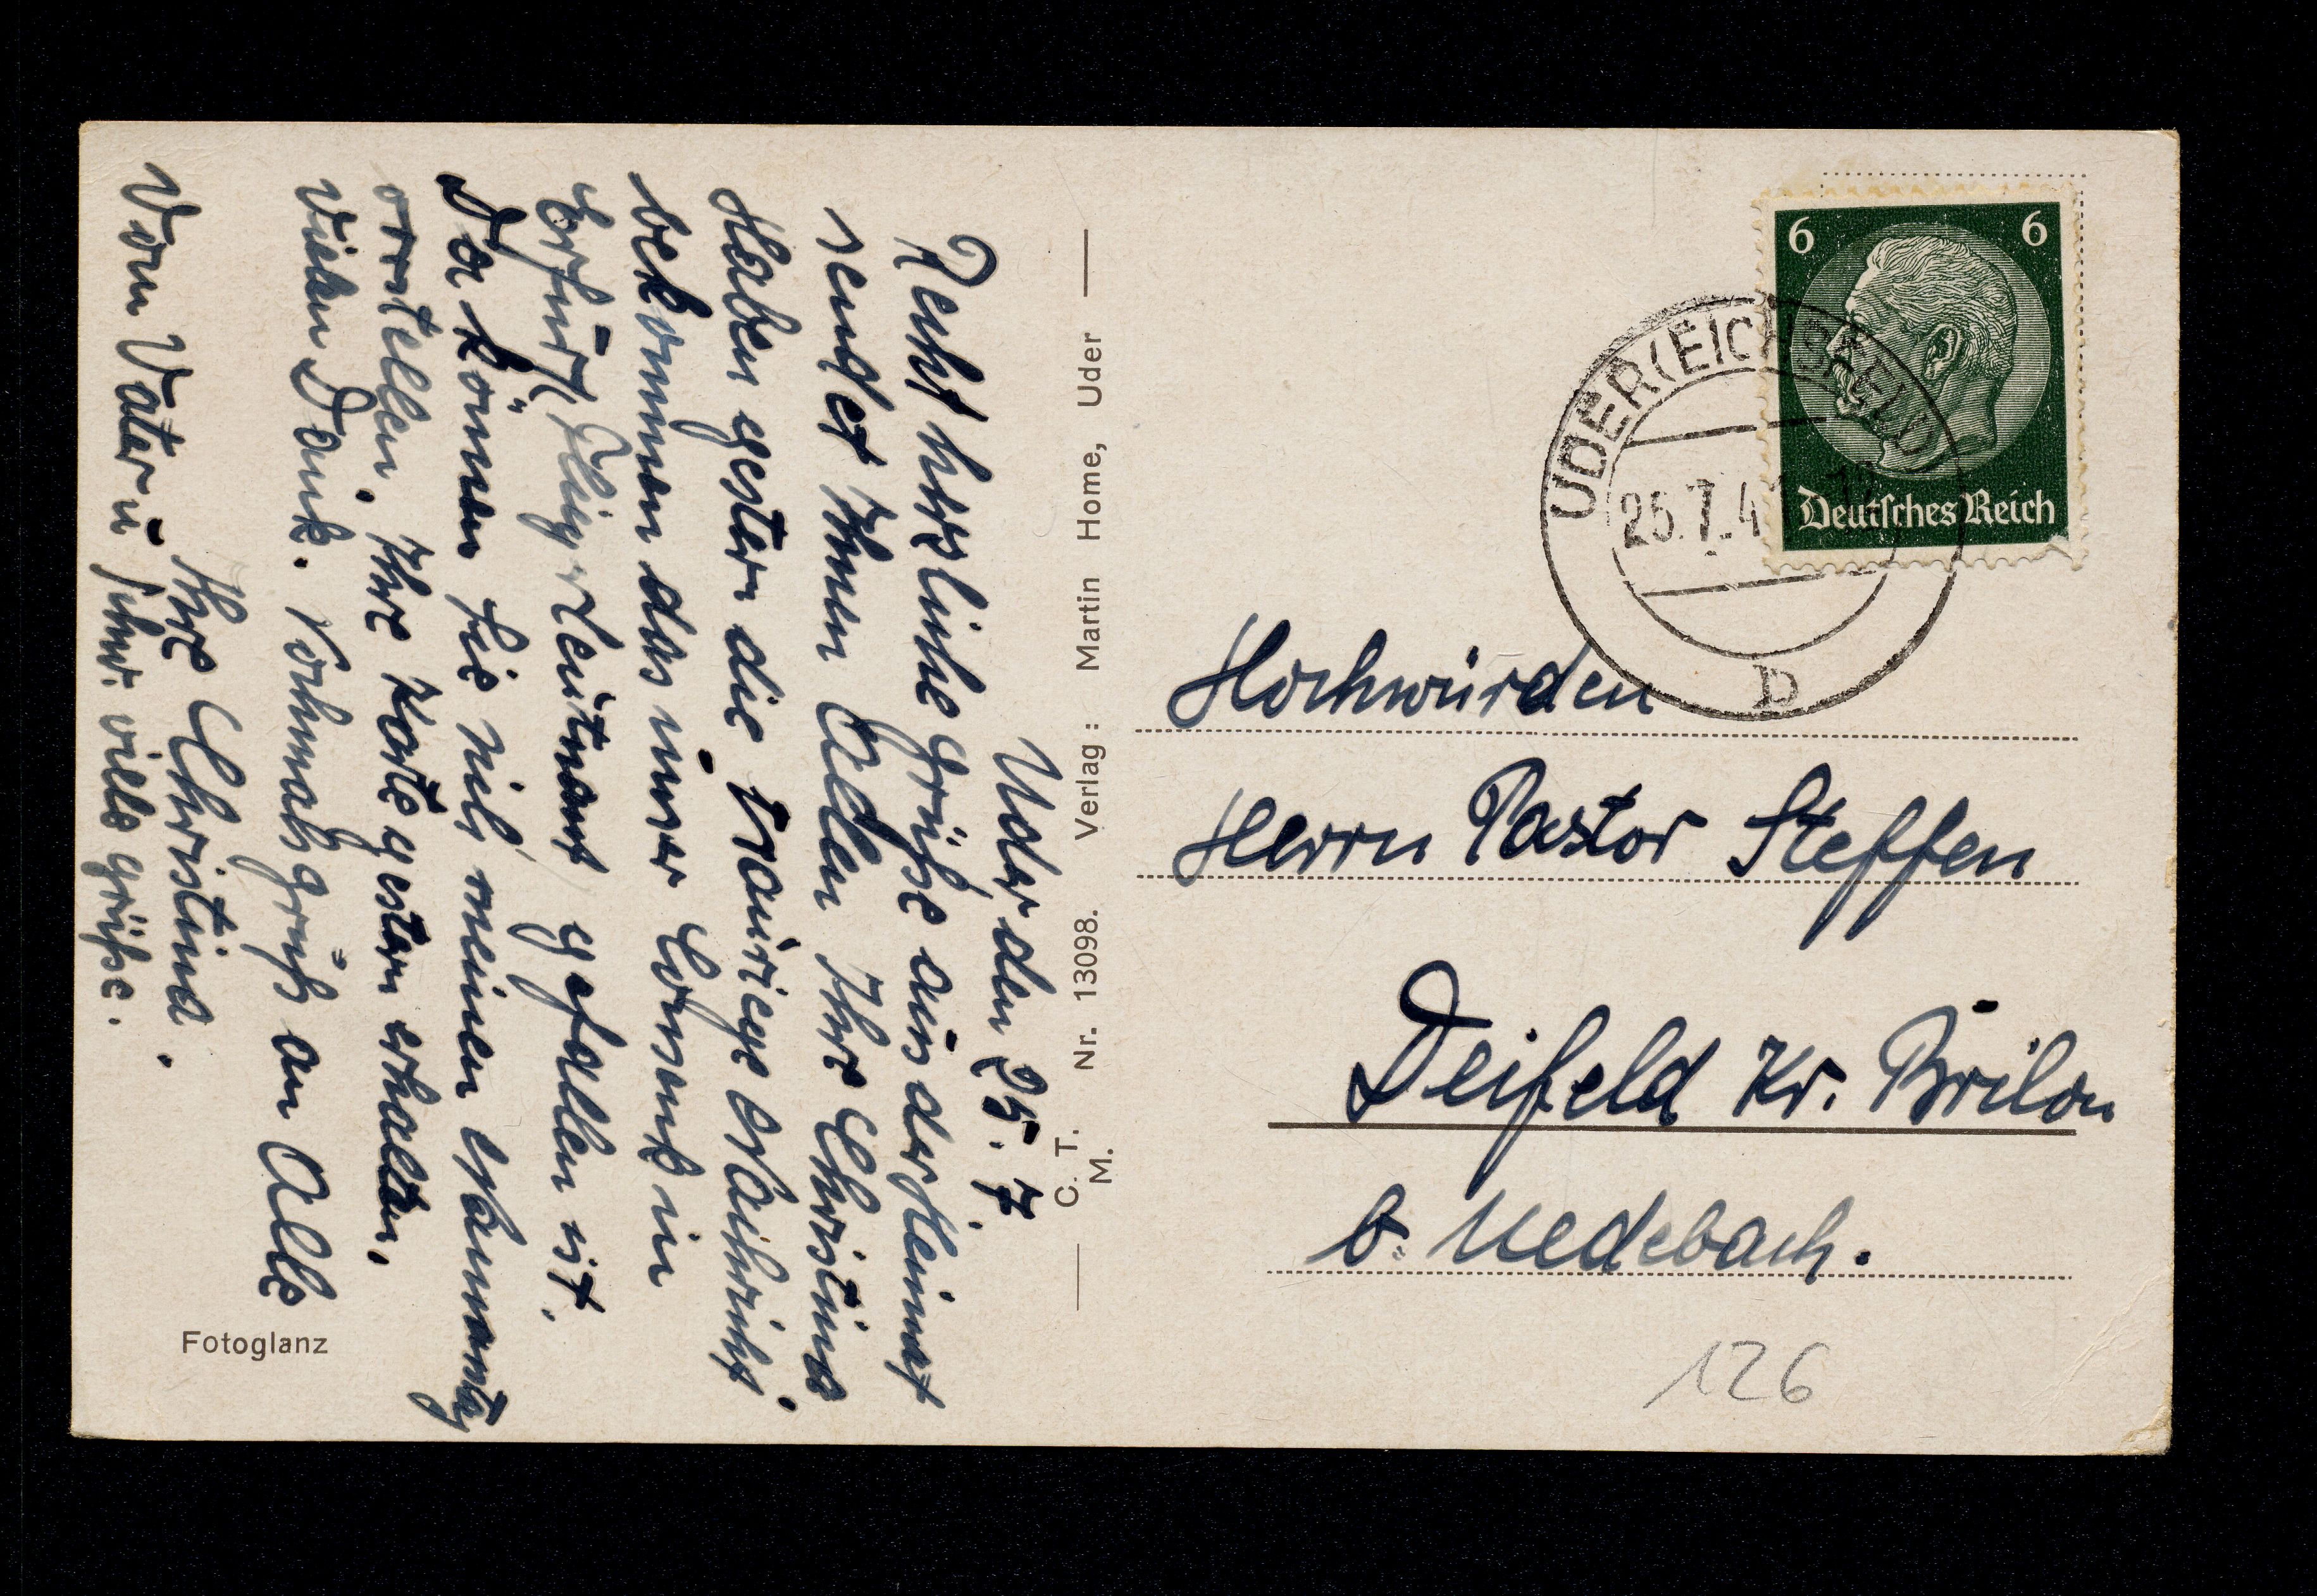 Uder den 25. 7.
Recht herzliche Grüße aus der Heimat
sendet Ihnen Allen Ihre Christina
Haben gestern die traurige Nachricht
bekommen das unser in
Erfurt, Leutnant gefallen ist.
Da können Sie meinen
vorstellen. Ihre Karte gestern erhalten,
vielen Dank. Nochmals grüß an Alle
Ihre Christina.
Vom Vater u. viele grüße.
Fotoglanz
C. T. M. Nr. 13098. Verlag: Martin Home, Uder
6 6
Deutsches Reich
UDER (EICHSFELD)
25.7.4
b
Hochwürden
Herrn Pastor Steffen
Deifeld Kr. Brilon
b. Medebach.
126